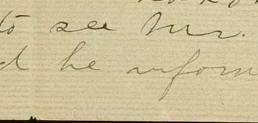 to see Mr.
he inform